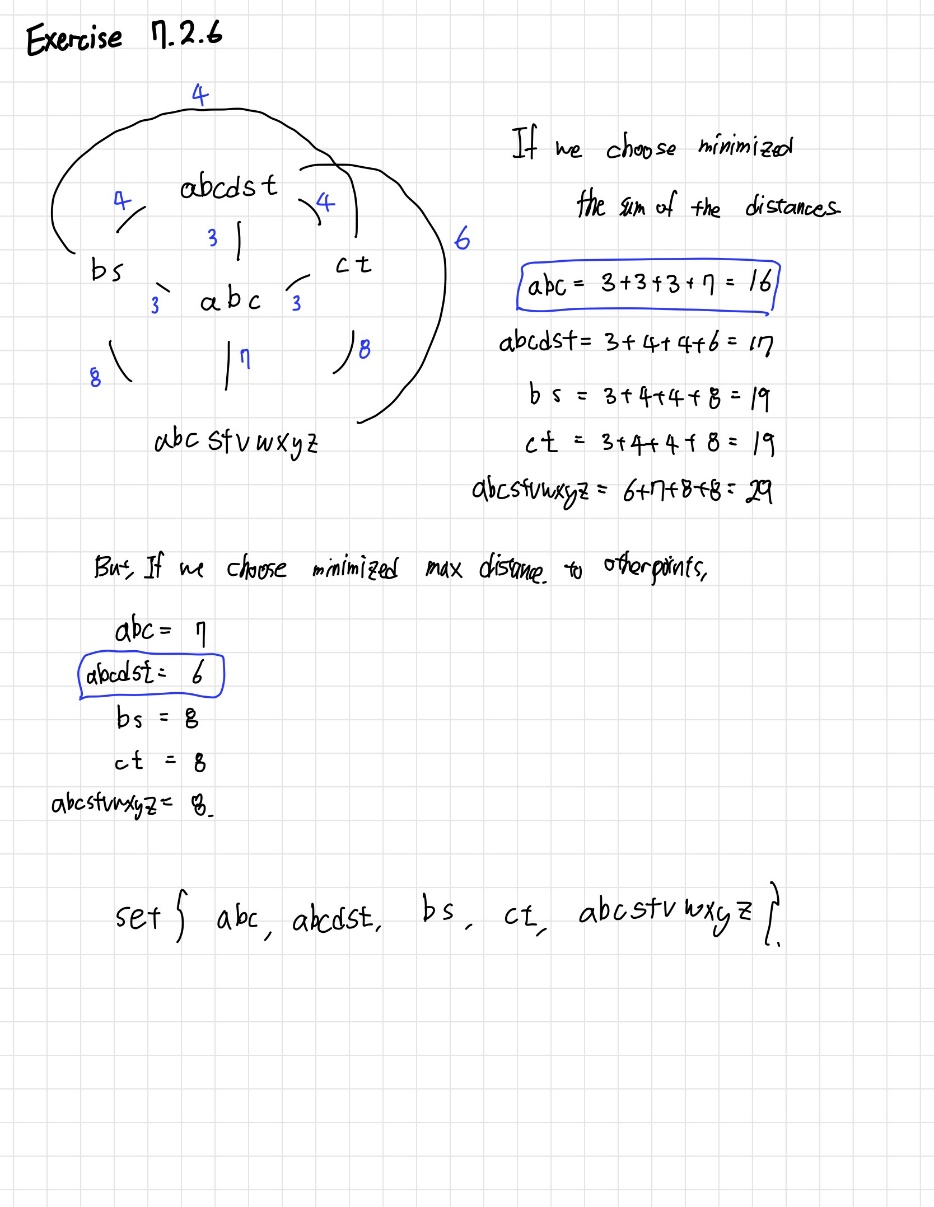 Exercise 7.2.6
4
abcdst
4
4
3
6
bs
ct
3
abc
3
8
7
8
abcstvwxyz
If we choose minimized
the sum of the distances
abc = 3+3+3+7 = 16
abcdst = 3+4+4+6 = 17
bs = 3+4+4+8 = 19
ct = 3+4+4+8 = 19
abcstvwxyz = 6+7+8+8 = 29
But, If we choose minimized max distance. to other points,
abc = 7
abcdst = 6
bs = 8
ct = 8
abcstvwxyz = 8.
set { abc, abcdst, bs, ct, abcstvwxyz }.